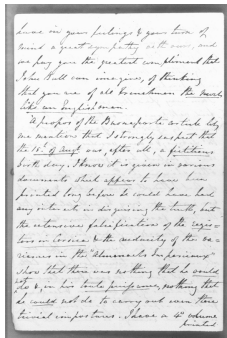 have in your feelings & your turn of
mind a great sympathy with ours, and
we pay you the greatest compliment that
John Bull can imagine, of thinking
that you are of all Frenchmen the most
like an Englishman.
Apropos of the Buonaparte article let
me mention that I strongly suspect that
the 15th of Augt was, after all, a fictitious
birth day. I know it is given in various
documents which appear to have been
printed long before he could have had
any interest in disguising the truth, but
the extensive fabrications of the regis-
ters in Corsica & the mendacity of the va-
riances in the "Almanachs Imperiaux"
shew that there was nothing that he would
not do &, in his toute puissance, nothing that
he could not do to carry out even these
trivial impostures. I have a 4to volume
printed